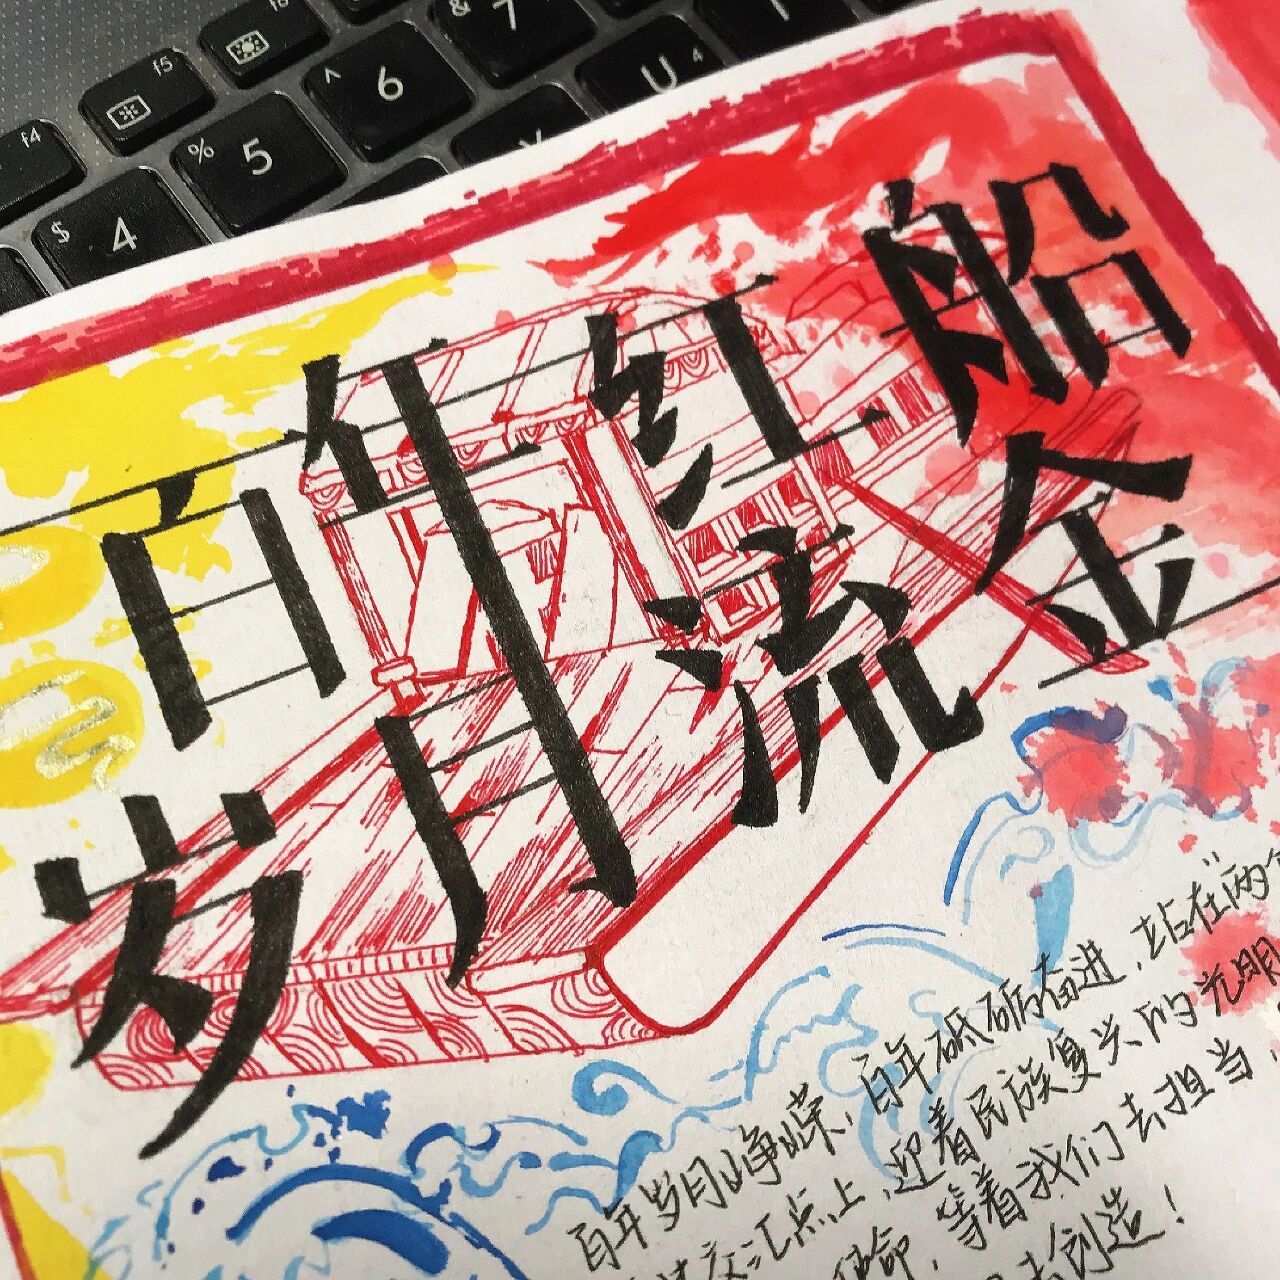 f4 f5 f6
$ 4 % 5 ^ 6 & 7 U 4
百年红船
岁月流金
百年岁月峥嵘，百年砥砺奋进，站在"两个
交汇点上，迎着民族复兴的光明
使命，等着我们去担当，
去创造！